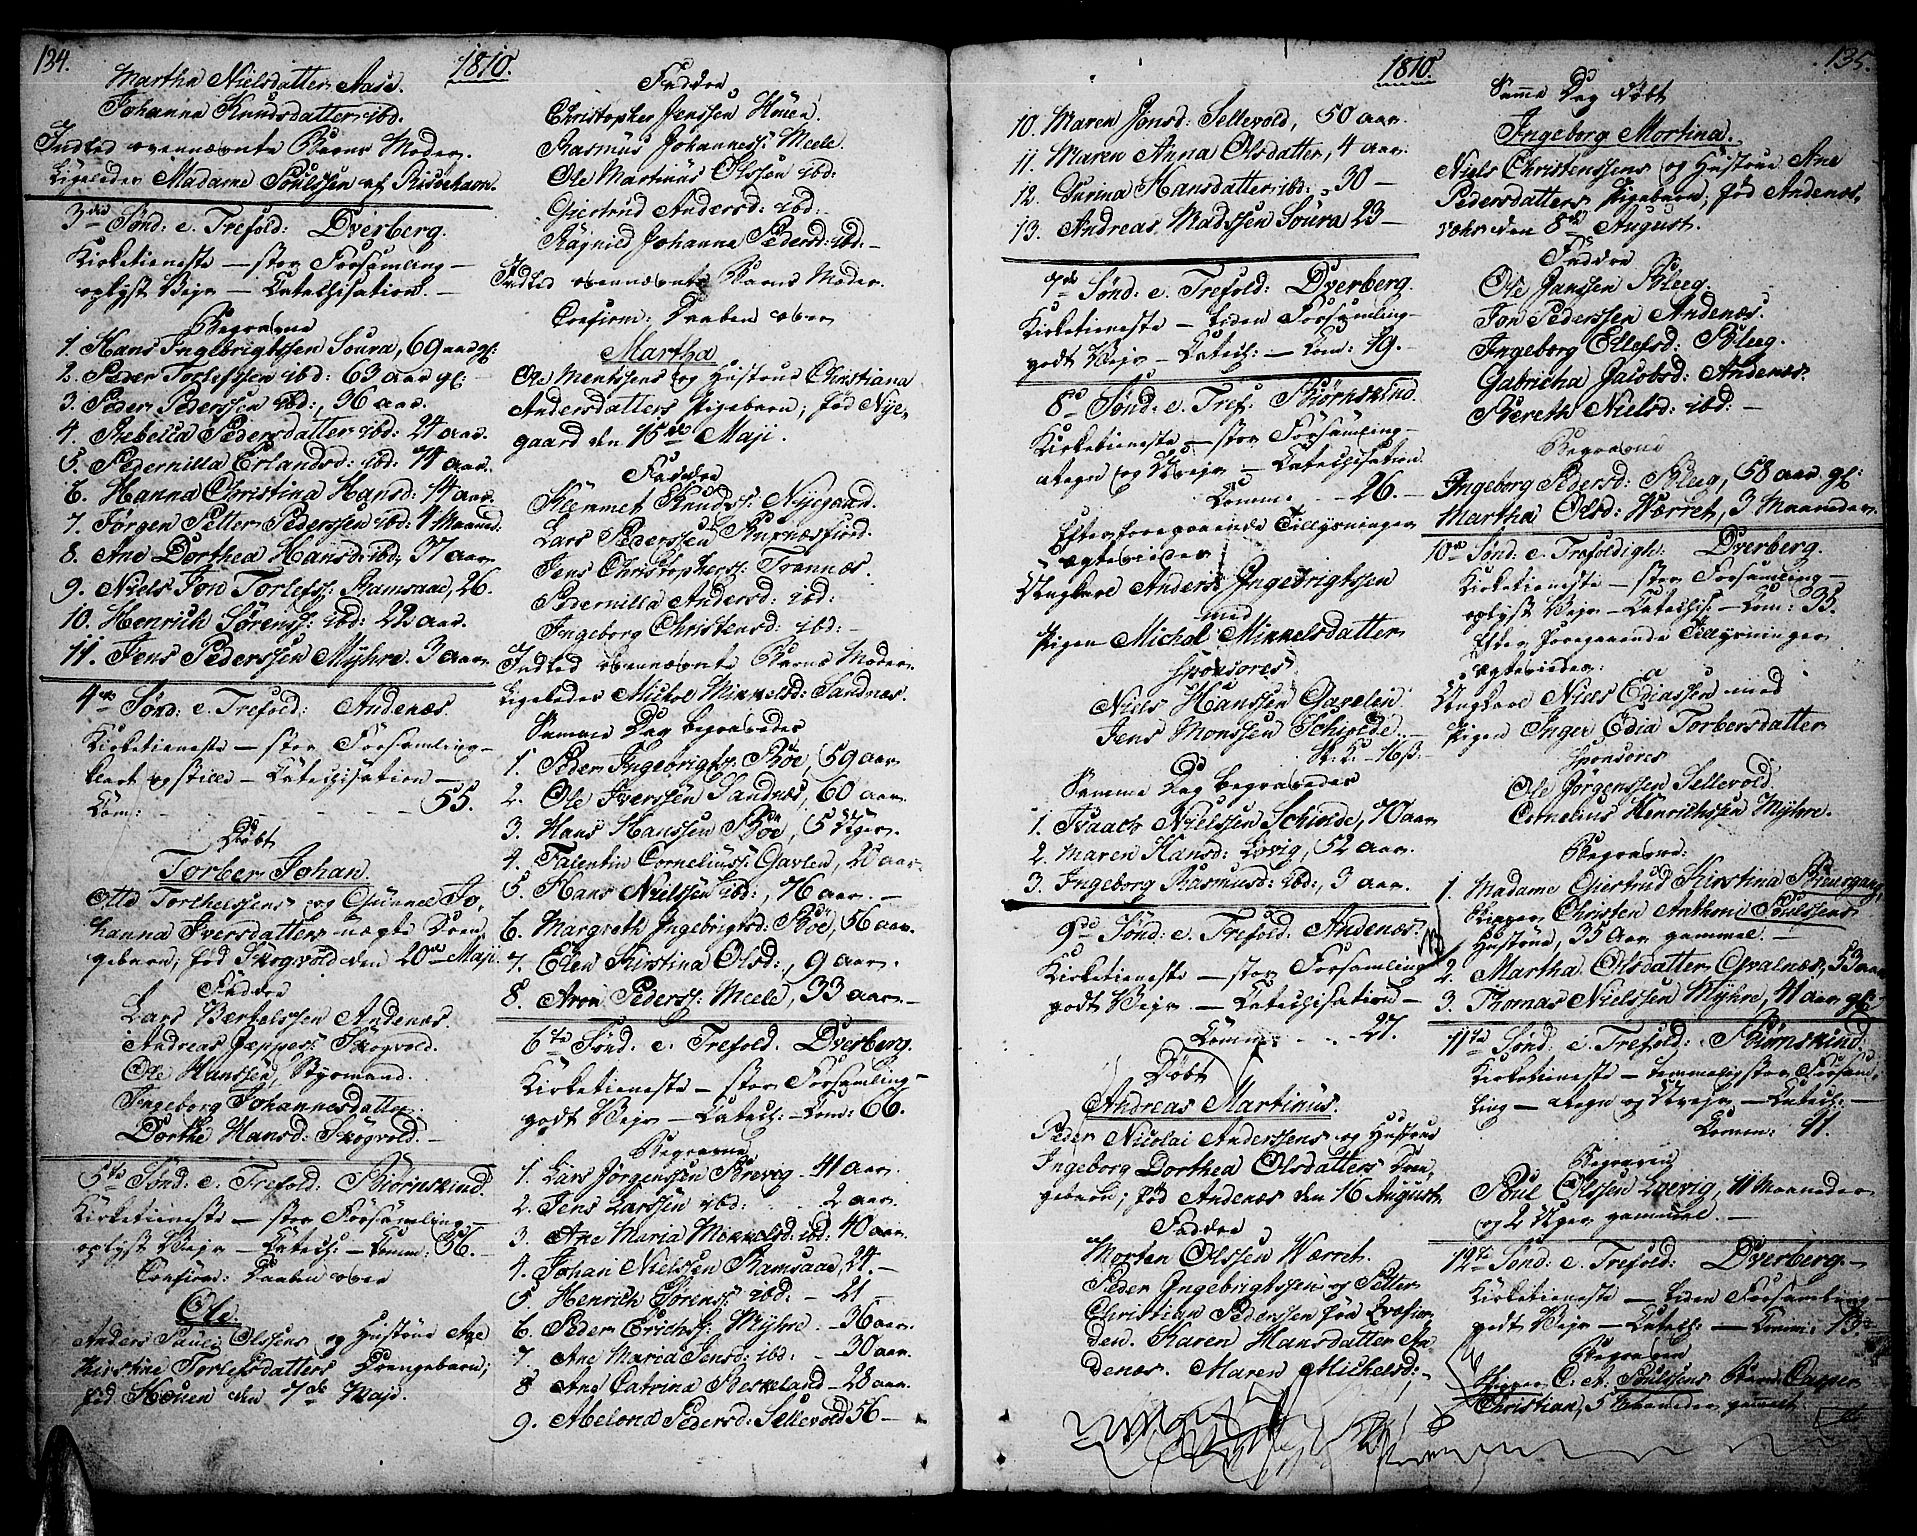 134.
1810.
Martha Nielsdatter Aase.
Johanna Knudsdatter ibd:
Indled ovennævnte Barns Moder.
Ligeledes Madame Povlssen af Risøehavn.
3die Sønd: e. Trefold: Dverberg.
Kirketieneste – stor Forsamling –
oplyst Vejr – Catechisation. –
Begravne
1. Hans Ingebrigtssen Soura, 69 aar gl:
2. Peder Torlefssen ibd: 63 aar gl: –
3. Peder Pederssen ibd:, 36 aar.
4. Rebecca Pedersdatter ibd: 24 aar.
5. Pedernilla Erlandsd: ibd: 74 aar.
6. Hanna Christina Hansd: 14 aar.
7. Jørgen Petter Pederssen ibd: 4 Maaned.
8. Ane Dorthea Hansd: ibd: 37 aar
9. Niels Jond Torlefs: Ramsaae, 26.
10. Henrich Sørens: ibd: 22 aar.
11. Jens Pederssen Myhre. 3 aar
4de Sønd: e. Trefold: Andenæs.
Kirketieneste – stor Forsamling –
klart og stille – Catechisation –
Com: – – – – 55.
Døbt
Torber Johan.
Otto Torchelssens og Gunnel Jo-
hanna Iversdatters uægte Dren-
gebarn, fød Skogvold den 20de Maji.
Faddre
Lars Bertelssen Andenæs.
Andreas Jeppes: Skogvold.
Ole Hanssen, Styrmand.
Ingeborg Johannesdatter.
Dorthe Hansd: Skogvold. –
5te Sønd: e. Trefold: Biørnskind.
Kirketieneste – stor Forsamling –
oplyst Vejr – Catech: – Comm: 36. –
Confirm: Daaben over
Ole.
Anders Paul Olssens og Hustrue Ane
Kirstine Torlefsdatters Drengebarn;
fød Houen den 7de Maji.
Faddre
Christopher Jenssen Houen.
Rasmus Johanness: Meele.
Ole Martinus Olssen ibd:
Giertrud Andersd: ibd: –
Ragnild Johanna Pedersd: ibd: –
Indled ovennævnte Barns Moder.
Confirm: Daaben over
Martha
Ole Mentssens og Hustrue Christiana
Andersdatters Pigebarn; fød Nye-
gaard den 15de Maji.
Faddre
Klemmet Knuds: Nyegaard.
Lars Pederssen
Jens Christophers: Trannæs.
Pedernilla Andersd: ibd:
Ingeborg Christensd: ibd: –
Indled ovennævnte Barns Moder.
Ligeledes Michol Mikkelsd: Sandnæs.
Samme Dag begravedes
1. Peder Ingebrigts: Bøe, 59 aar
2. Ole Iverssen Sandnæs, 60 aar.
3. Hans Hanssen Bøe, 5 Uger.
4. Falentin Cornelius: Gavlen, 20 aar
5. Hans Nielssen ibd:, 76 aar. –
6. Margreth Ingebrigtsd: Bøe, 56 aar.
7. Elen Kirstina Olsd:, 9 aar.
8. Aron Peders: Meele, 33 aar. –
6te Sønd: e. Trefold: Dverberg.
Kirketieneste – stor Forsamling –
godt Vejr – Catech: – Com: 66.
Begravne
1. Lars Jørgenssen Brevig – 41 aar.
2. Jens Larssen ibd: 2 aar.
3. Ane Maria Mikkelsd: ibd: 40 aar.
4. Johan Nielssen Ramsaae, 24. –
5. Henrich Sørens: ibd: – 21 –
6. Peder Erichs: Myhre – 36 aar.
7. Ane Maria Jensd: ibd: – 30 aar.
8 Ane Catrina Reskeland – 28 aar.
9. Abelona Pedersd: Sellevold 56 –
1810.
135.
10. Maren Jonsd: Sellevold, 50 aar.
11. Maren Anna Olsdatter, 4 aar.
12. Gurina Hansdatter ibd: 30 –
13. Andreas Madssen Soura 23 –
7de Sønd: e. Trefold: Dverberg.
Kirketieneste – liden Forsamling –
godt Vejr – Catech: – Com: 19. –
8de Sønd: e. Tref: Biørnskind.
Kirketieneste – stor Forsamling –
– Catechisation.
Comm: – – 26. –
Efter foregaaende Tillysninger
Egtevieder
Ungkarl Anders Ingebrigtssen
med
Pigen Michol Mikkelsdatter
Sponsores
Niels Hanssen Gavelen.
Jens Monssen Schiolde. –
Samme Dag begravedes
1. Isaach Nielssen Schiolde, 70 aar
2. Maren Hansd: Lovig, 52 aar.
3. Ingeborg Rasmusd: ibd:, 3 aar.
9de Sønd: e. Trefold: Andenæs.
Kirketieneste – stor Forsamling
godt Vejr – Catechisation –
Comm: – – 27.
Døbt
Andreas Martinus.
Peder Nicolai Anderssens og Hustrue
Ingeborg Dorthea Olsdatters Dren-
gebarn; fød Andenæs den 16 August.
Faddre
Morten Olssen Værret.
Peder Ingebrigtssen og Petter
Christian Pederssen fra
Karen Hansdatter An-
denæs. Maren Michelsd: –
Samme Dag døbt
Ingeborg Mortina.
Niels Christenssens og Hustrue Ane
Pedersdatters Pigebarn, fød Andenæs,
den 8de August.
Faddre
Ole Janssen Bleeg.
Jon Pederssen Andenæs.
Ingeborg Ellefsd: Bleeg.
Gabricha Jacobsd: Andenæs.
Bereth Nielsd: ibd: –
Begravne
Ingeborg Pedersd: Bleeg, 58 aar gl:
Martha Olsd: Værret, 3 Maaneder.
10de Sønd: e. Trefoldigh: Dverberg.
Kirketieneste – stor Forsamling –
oplyst Vejr – Catechis: – Com: 35.
Efter foregaaende Tillysninger
Egtevieder:
Ungkarl Niels Ediassen med
Pigen Inger Edia Torbersdatter
Sponsores
Ole Jørgenssen Sellevold
Cornelius Henrichssen Myhre.
Begravne:
1. Madame Giertrud Kirstina
Christen Anthoni Povlssens
Hustrue, 35 aar gammel. –
2. Martha Olsdatter Qvalnæs, 53 aar
3. Thomas Nielssen Myhre, 41 aar gl:
11te Sønd: e. Trefold: Biørnskind.
Kirketieneste – temmelig stor Forsam-
ling – – Catech: –
Comm: 11.
Begraven
Poul Olssen Lovig, 11 Maaneder
og 2 Uger gammel. –
12te Sønd: e. Trefold: Dverberg. –
Kirketieneste – liden Forsamling –
godt Vejr – Catech: – Comm: 13.
Begraven
C. A. Povlssens Barn Casper
Christian, 5 Maaneder gammel.